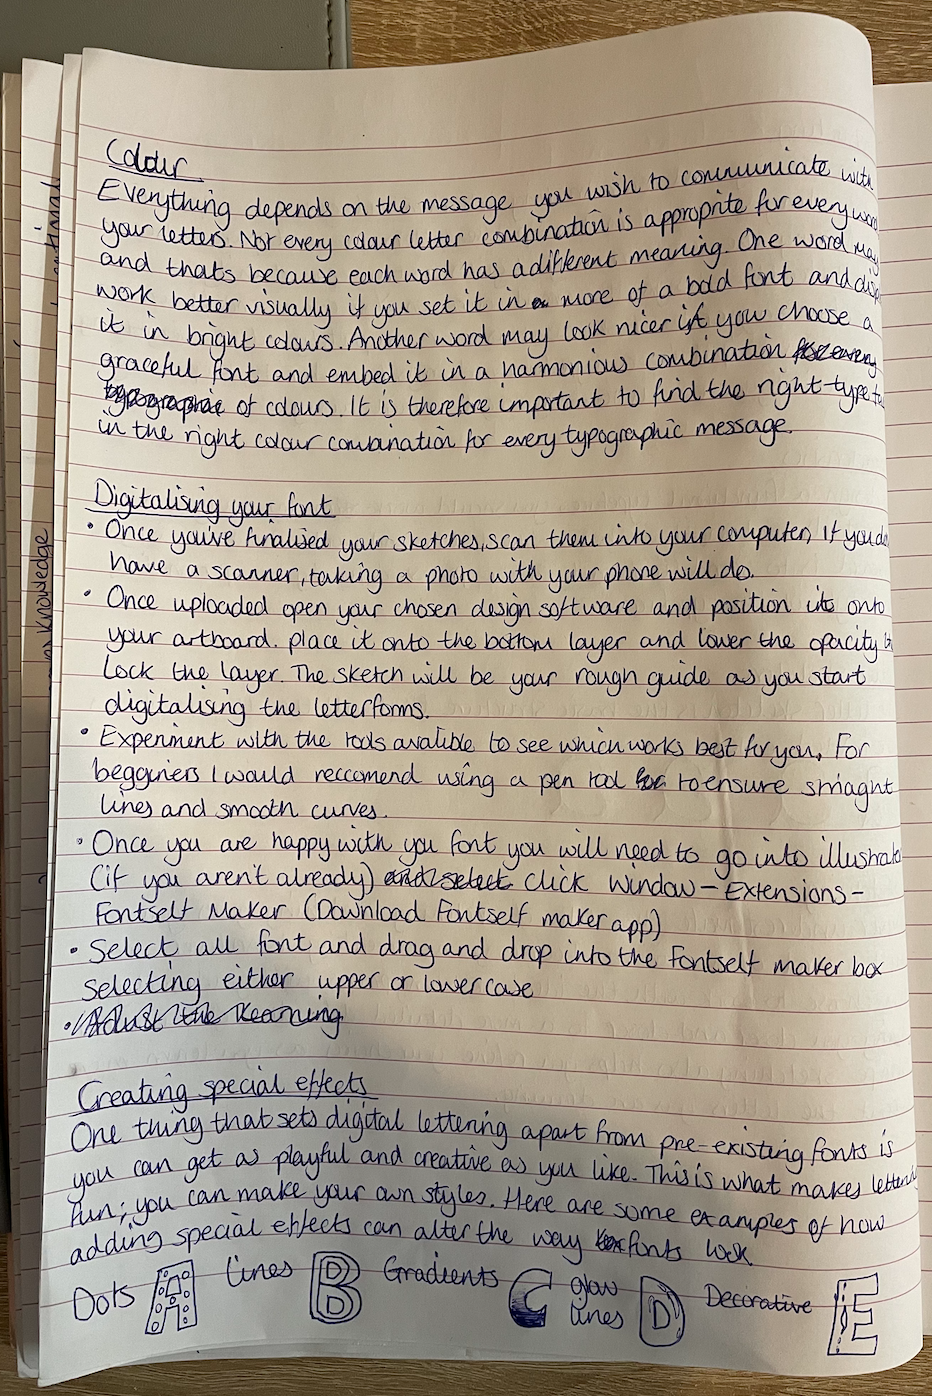 Colour
Everything depends on the message you wish to communicate with
your letters. Not every colour letter combination is approprite for every word
and thats because each word has a different meaning. One word may
work better visually if you set it in more of a bold font and
it in bright colours. Another word may look nicer if you choose a
graceful font and embed it in a harmonious combination for every
typographic of colours. It is therefore important to find the right type
in the right colour combination for every typographic message.
Digitalising your font
• Once you've finalised your sketches, scan them into your computer, If you
have a scanner, taking a photo with your phone will do.
• Once uploaded open your chosen design software and position it onto
your artboard. place it onto the bottom layer and lower the opacity
Lock the layer. The sketch will be your rough guide as you start
digitalising the letterforms.
• Experiment with the tools availible to see which works best for you. For
begginers I would reccomend using a pen tool to ensure straight
lines and smooth curves.
• Once you are happy with you font you will need to go into illustrator
(if you aren't already) and select click Window – Extensions –
Fontself Maker (Download Fontself maker app)
• Select all font and drag and drop into the Fontself maker box
selecting either upper or lowercase
• Adjust the Kearning
Creating special effects
One thing that sets digital lettering apart from pre-existing fonts is
you can get as playful and creative as you like. This is what makes lettering
fun; you can make your own styles. Here are some examples of how
adding special effects can alter the way fonts look
Dots A Lines B Gradients C glow lines D Decorative E
knowledge